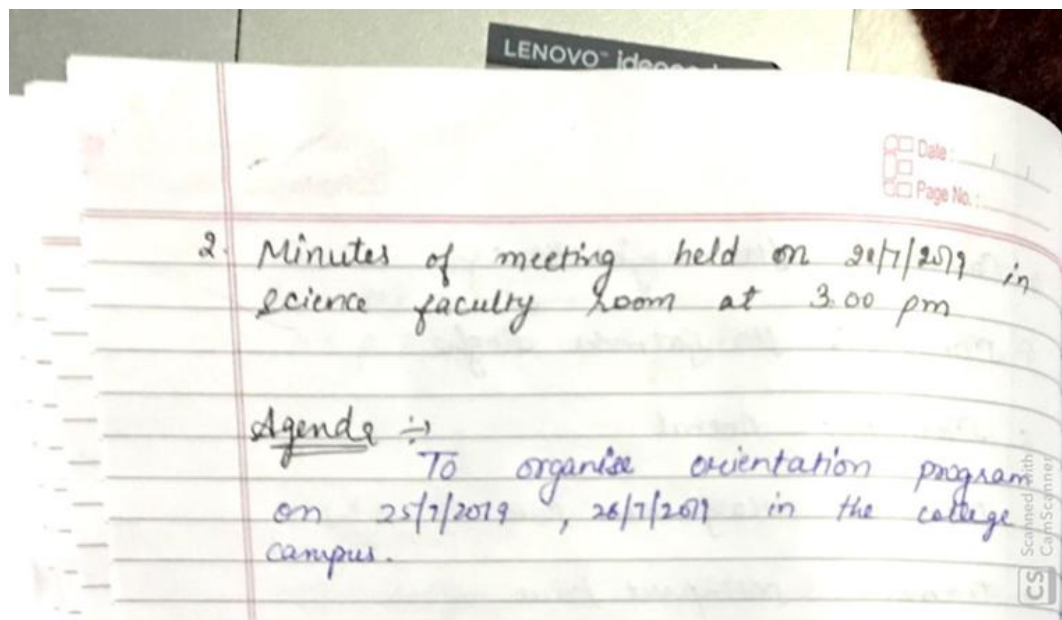 LENOVO
Date :
Page No. :
2. Minutes of meeting held on /7/2019 in
science faculty room at 3.00 pm
Agenda :→
To organise orientation program
on 25/7/2019 , 26/7/2019 in the college
campus.
CS Scanned with
CamScanner